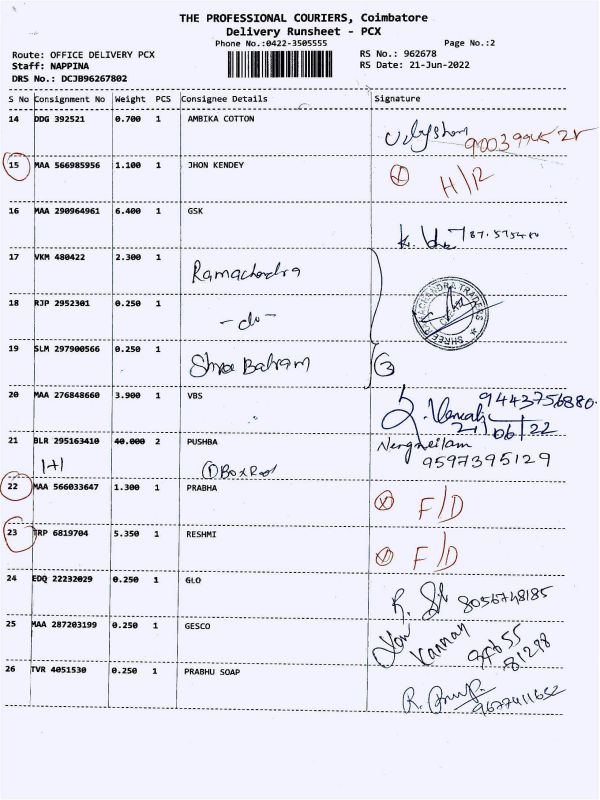 THE PROFESSIONAL COURIERS, Coimbatore
Delivery Runsheet - PCX
Phone No.:0422-3505555 Page No.:2
Route: OFFICE DELIVERY PCX RS No.: 962678
Staff: NAPPINA RS Date: 21-Jun-2022
DRS No.: DCJB96267802
S No Consignment No Weight PCS Consignee Details Signature
14 DDG 392521 0.700 1 AMBIKA COTTON
15 MAA 566985956 1.100 1 JHON KENDEY H/R
16 MAA 290964961 6.400 1 GSK
17 VKM 480422 2.300 1 Ramachandra
18 RJP 2952301 0.250 1 -do-
SHREE RAMACHANDRA TRADERS
19 SLM 297900566 0.250 1 Shree Balram 3
20 MAA 276848660 3.900 1 VBS 9443756880
21/06/22
21 BLR 295163410 40.000 2 PUSHBA
9597395129
1+1 1 Box
22 MAA 566033647 1.300 1 PRABHA F/D
23 TRP 6819704 5.350 1 RESHMI F/D
24 EDQ 22232029 0.250 1 GLO 8056748185
25 MAA 287203199 0.250 1 GESCO Kannan
81298
26 TVR 4051530 0.250 1 PRABHU SOAP 9677411652